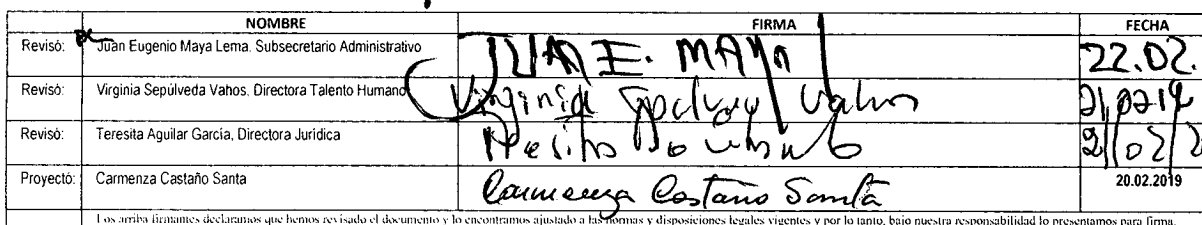 NOMBRE FIRMA FECHA
Revisó: Juan Eugenio Maya Lema. Subsecretario Administrativo JUAN E. MAYA 22.02.
Revisó: Virginia Sepúlveda Vahos. Directora Talento Humano Virginia Vahos
Revisó: Teresita Aguilar García, Directora Jurídica
Proyectó: Carmenza Castaño Santa Carmenza Castaño Santa 20.02.2019
Los arriba firmantes declaramos que hemos revisado el documento y lo encontramos ajustado a las normas y disposiciones legales vigentes y por lo tanto, bajo nuestra responsabilidad lo presentamos para firma.